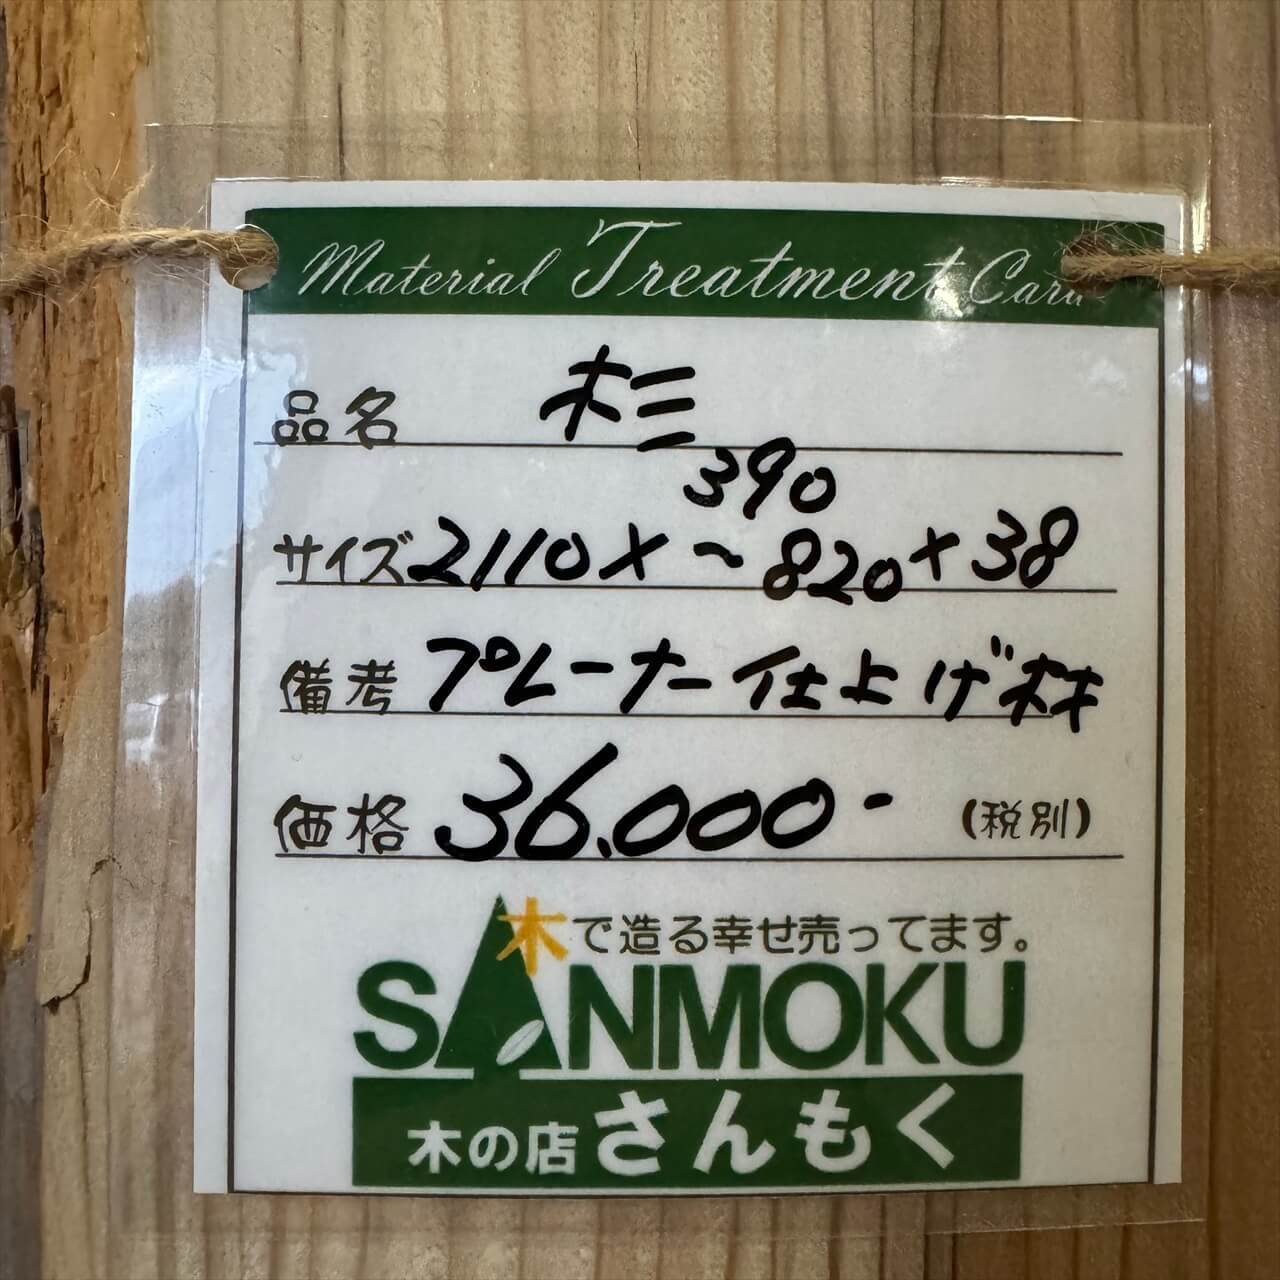 Material Treatment Card
品名 杉
390
サイズ 2110×~820×38
備考 プレーナー仕上げ材
価格 36.000- (税別)
木で造る幸せ売ってます。
SANMOKU
木の店さんもく